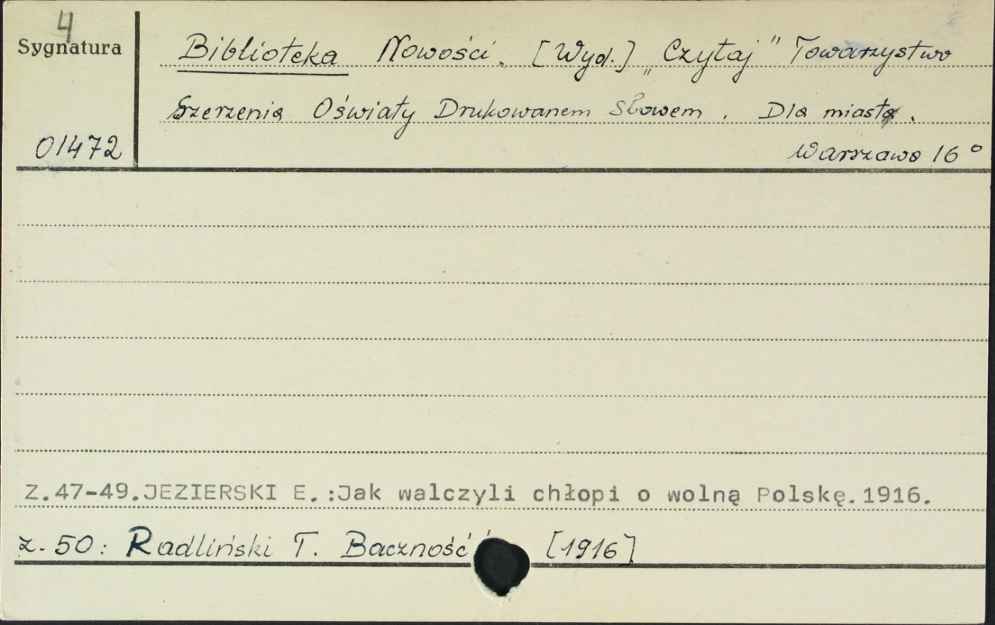 4
Sygnatura
Biblioteka Nowości. [Wyd.] „Czytaj" Towarzystwo
Szerzenia Oświaty Drukowanem Słowem. Dla miasta.
01472
Warszawa 16°
Z.47-49.JEZIERSKI E.:Jak walczyli chłopi o wolną Polskę.1916.
z. 50: Radliński T. Baczność [1916]